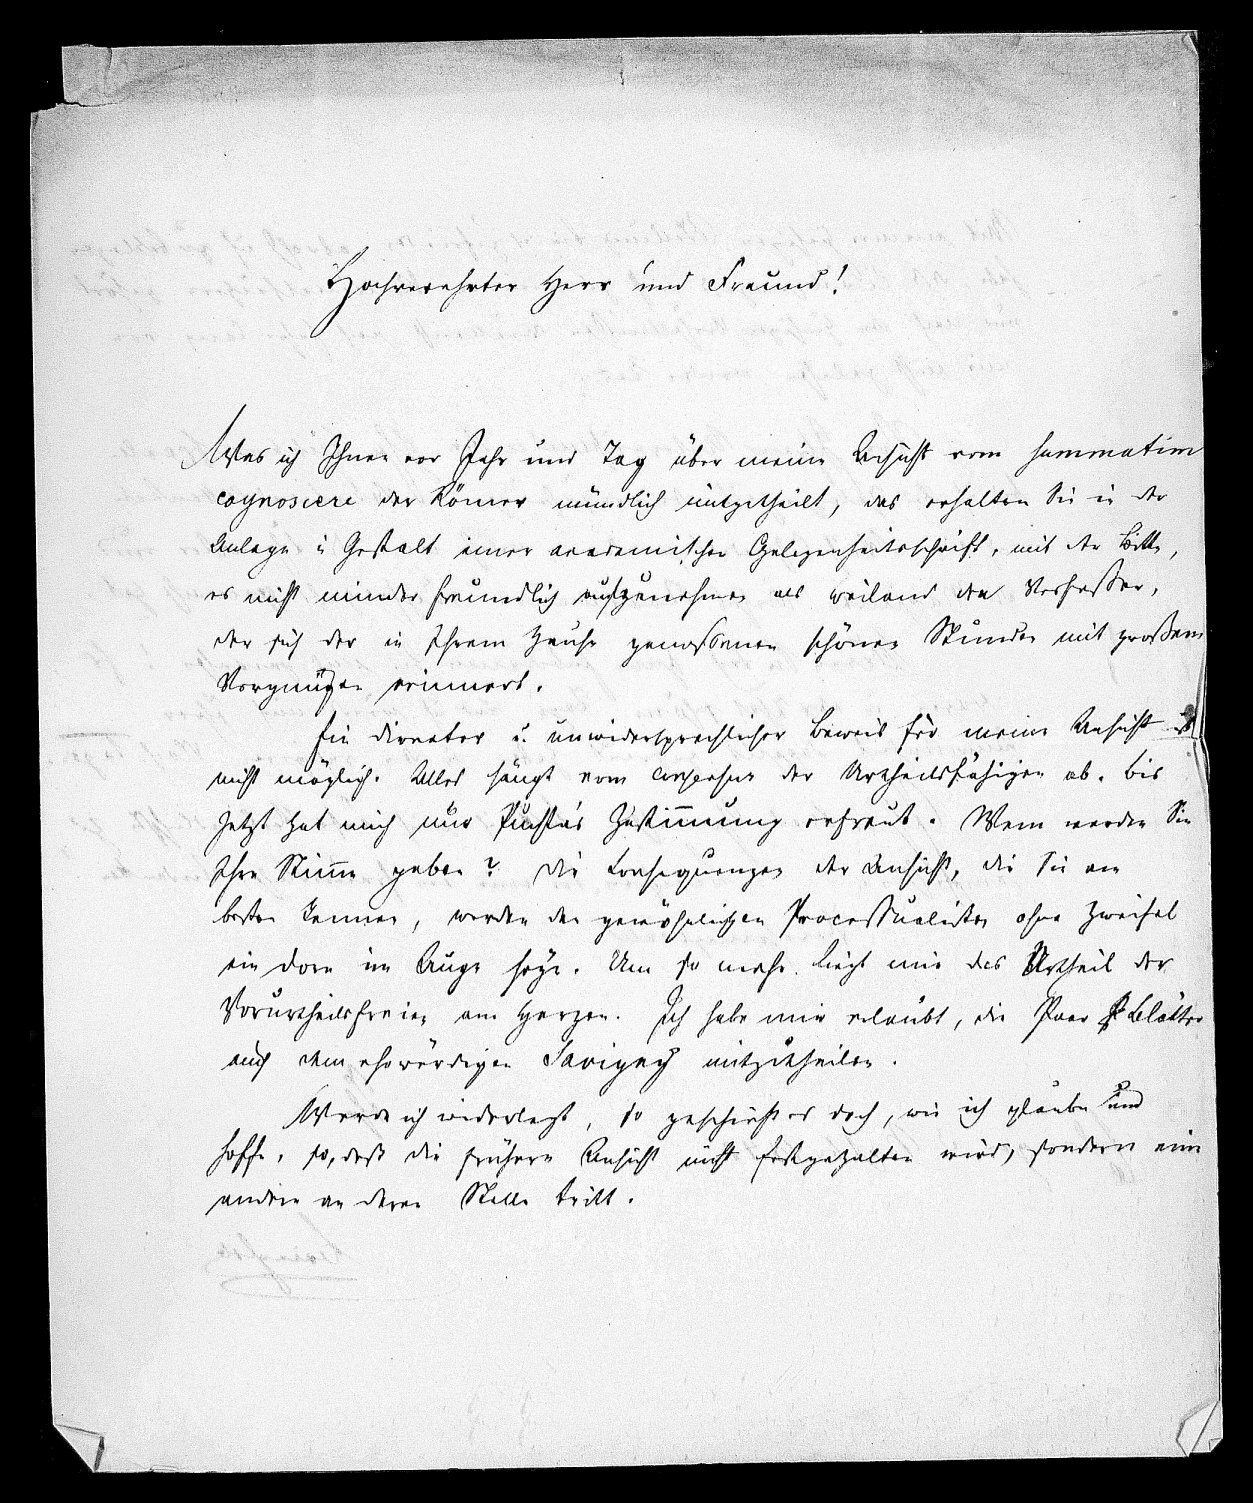 Hochverehrter Herr und Freund!
Was ich Ihnen vor Jahr und Tag über meine Ansicht vom summatim
cognoscere der Römer mündlich mitgetheilt, das erhalten Sie in der
Anlage in Gestalt einer academischen Gelegenheitsschrift, mit der Bitte,
es nicht minder freundlich aufzunehmen als weiland den Verfasser,
der sich der in Ihrem Hause genossenen schönen Stunden mit großem
Vergnügen erinnert.
Ein directer u. unwidersprechlicher Beweis für meine Ansicht ist
nicht möglich. Alles hängt vom consensus der Urtheilsfähigen ab. Bis
jetzt hat mich nur Puchta's Zustimmung erfreut. Wem werden Sie
Ihre Stimme geben? Die Consequenzen der Ansicht, die Sie am
besten kennen, werden den gewöhnlichen Processualisten ohne Zweifel
ein Dorn im Auge seyn. Um so mehr liegt mir das Urtheil der
Vorurtheilsfreien am Herzen. Ich habe mir erlaubt, die Paar Blätter
auch dem ehrwürdigen Savigny mitzutheilen.
Werde ich widerlegt, so geschieht es doch, wie ich glaube und
hoffe, so, daß die frühere Ansicht nicht festgehalten wird, sondern eine
andere an deren Stelle tritt.